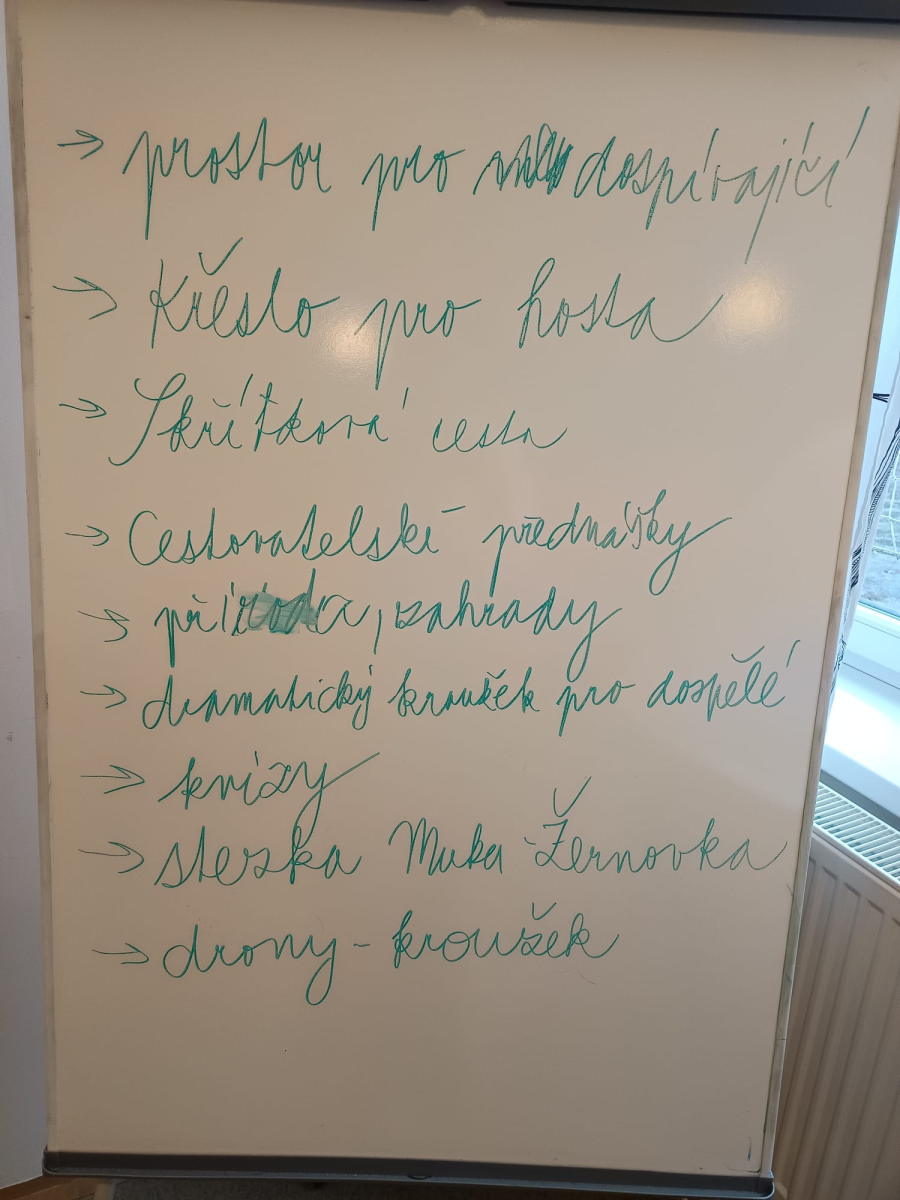 → prostor pro dospívající
→ Křeslo pro hosta
→ Skřítková cesta
→ Cestovatelské přednášky
→ příroda, zahrady
→ dramatický kroužek pro dospělé
→ kvízy
→ stezka Muka-Žernovka
→ drony - kroužek